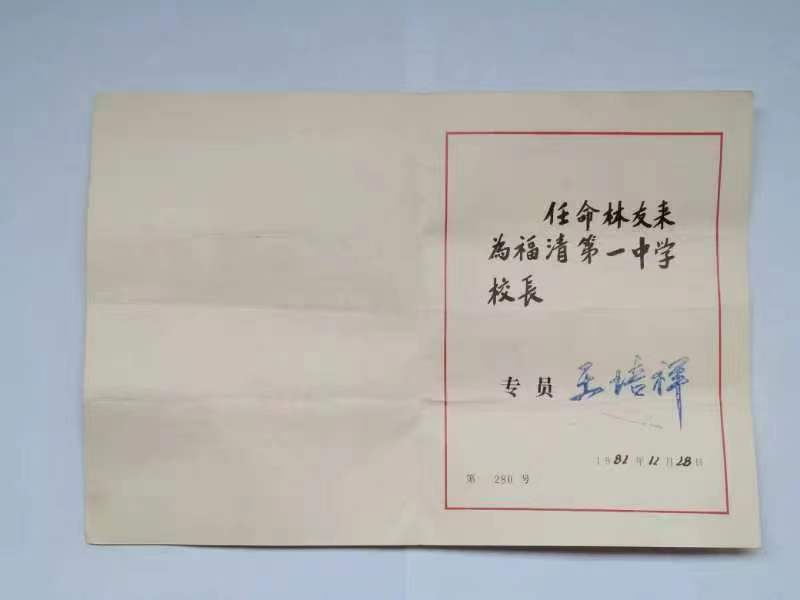 任命林友来
為福清第一中学
校長
专员 王培祥
1981年12月28日
第 280 号